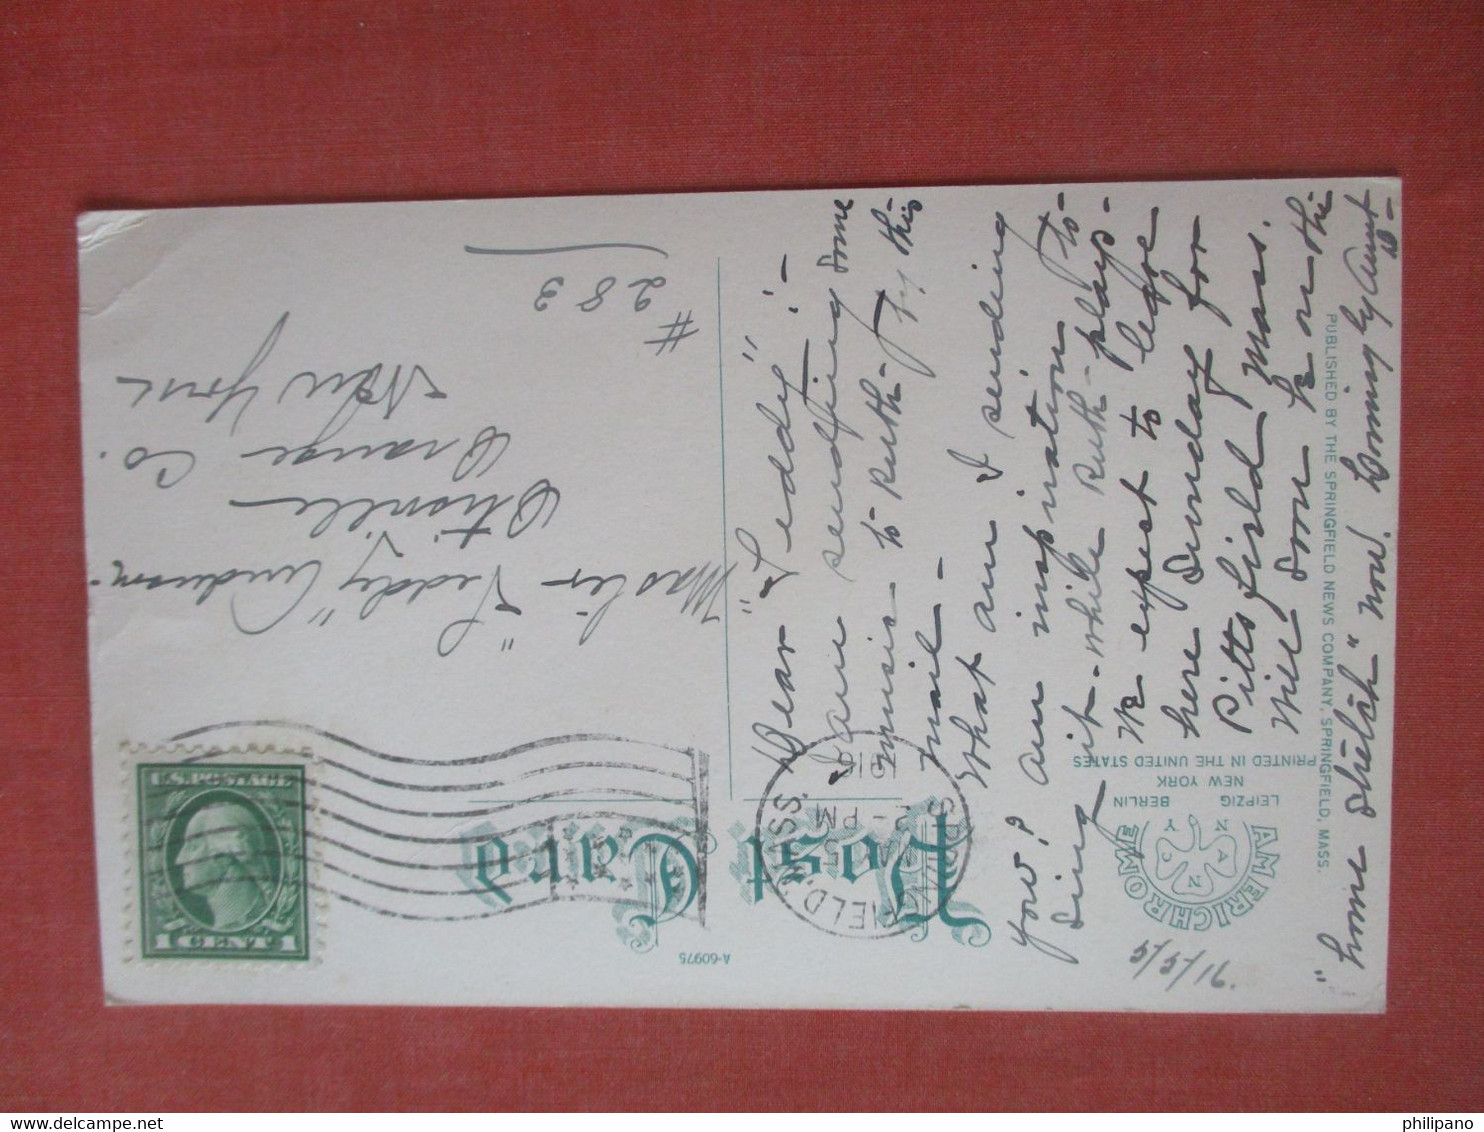 Post Card
A-60975
SPRINGFIELD, MASS.
MAY 5
2-PM
1916
U.S. POSTAGE
1 CENT 1
AMERICHROME
ANNCY
LEIPZIG BERLIN
NEW YORK
PRINTED IN THE UNITED STATES
PUBLISHED BY THE SPRINGFIELD NEWS COMPANY, SPRINGFIELD, MASS.
5/5/16.
Dear "Teddy" :-
I am sending some
music to Ruth by this
mail -
What am I sending
you? An inspiration to
sing it - while Ruth plays -
We expect to leave
here Sunday for
Pittsfield Mass.
Will soon be on the
"home stretch" now. Loving by Aunt
Master "Teddy" Anderson.
Otisville
Orange Co.
New York
# 283
philipano
delcampe.net